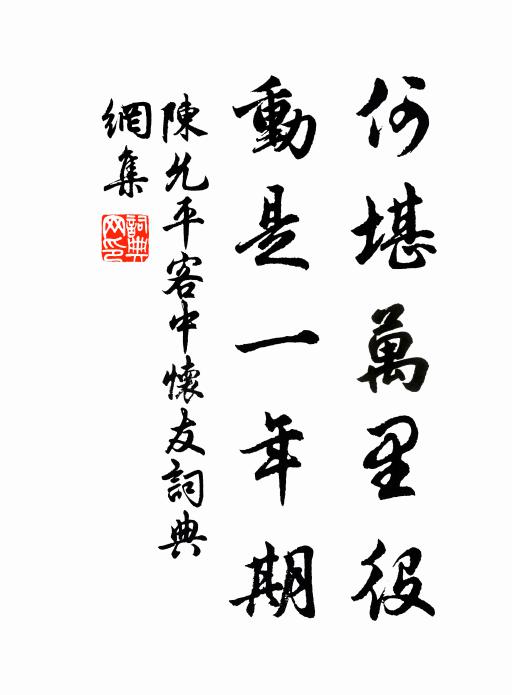 何堪萬里役
動是一年期
陳允平客中懷友詞典
網集
詞典网印